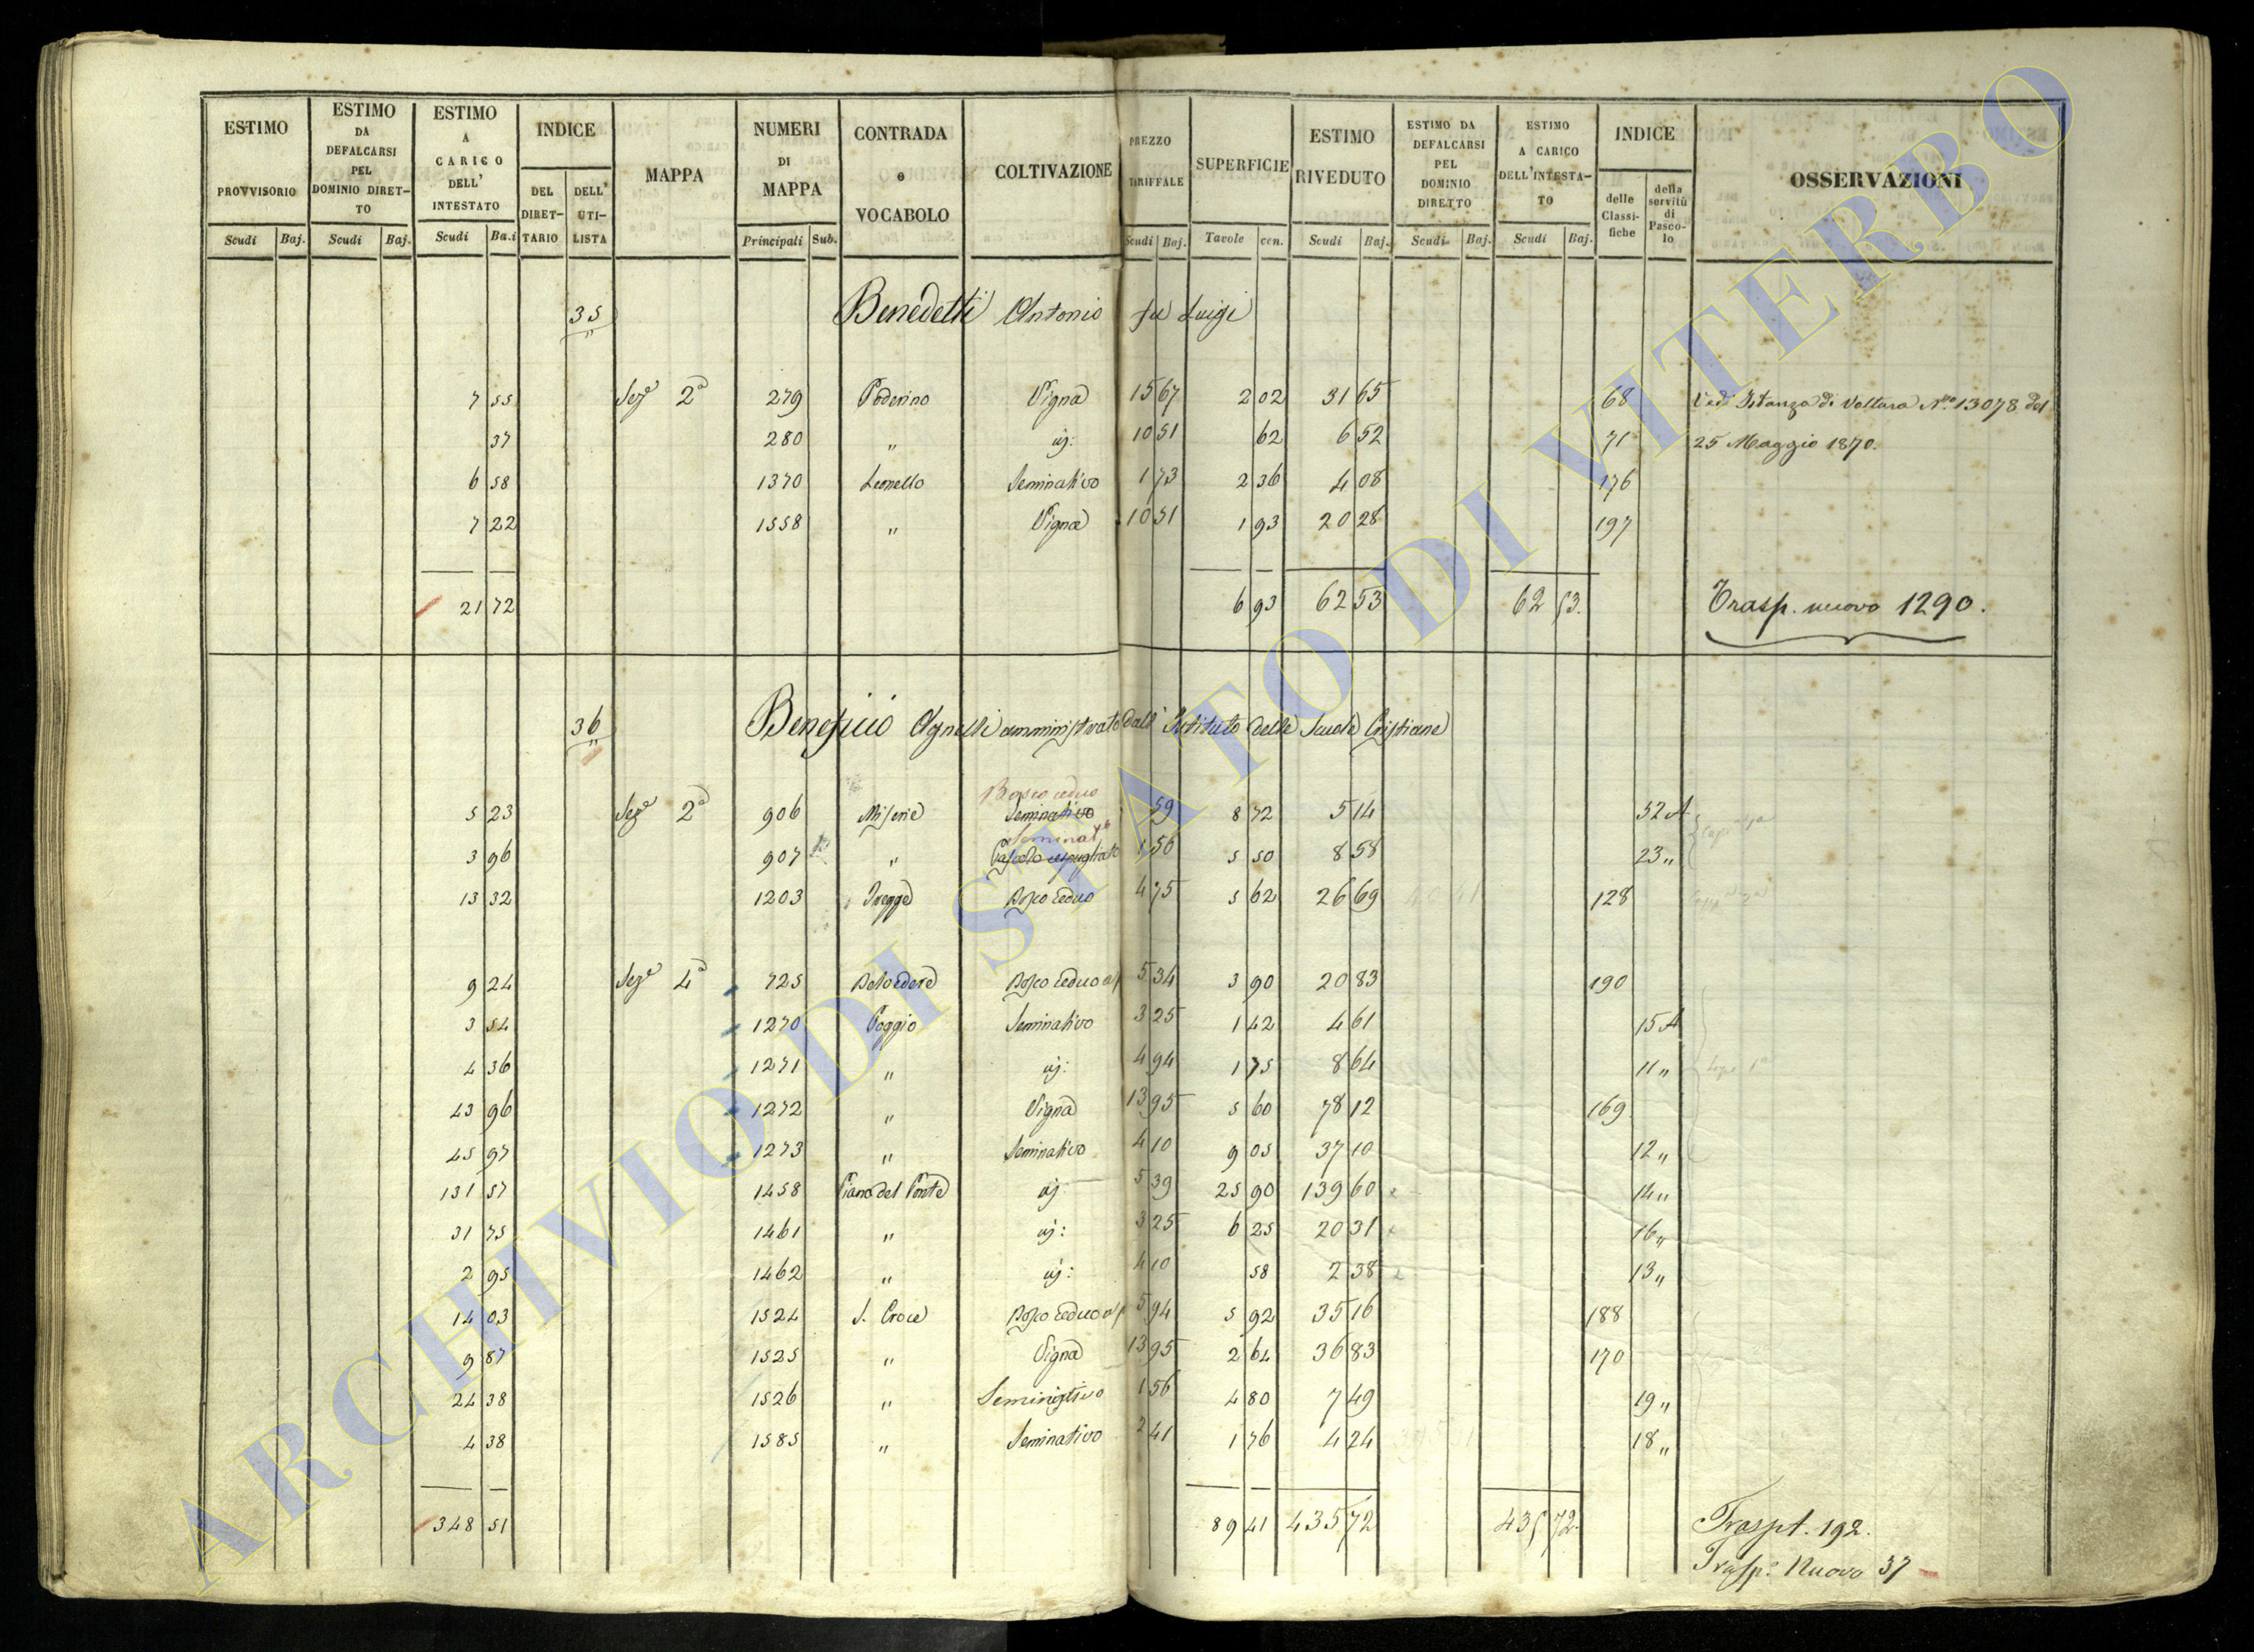 ESTIMO PROVVISORIO | ESTIMO DA DEFALCARSI PEL DOMINIO DIRET-TO | ESTIMO A CARICO DELL' INTESTATO | INDICE | MAPPA | NUMERI DI MAPPA | CONTRADA o VOCABOLO | COLTIVAZIONE | PREZZO TARIFFALE | SUPERFICIE | ESTIMO RIVEDUTO | ESTIMO DA DEFALCARSI PEL DOMINIO DIRETTO | ESTIMO A CARICO DELL'INTESTA-TO | INDICE | OSSERVAZIONI
DEL DIRET-TARIO | DELL' UTI-LISTA | delle Classi-fiche | della servitù di Pasco-lo
Scudi | Baj. | Scudi | Baj. | Scudi | Ba.i | Principali | Sub. | Scudi | Baj. | Tavole | cen. | Scudi | Baj. | Scudi | Baj. | Scudi | Baj.
35 Benedetti Antonio fu Luigi
7 55 | Seze 2a | 279 | Poderino | Vigna | 15 67 | 2 02 | 31 65 | 68 | Vedi Istanza di Voltura No. 13078 del
37 | 280 | " | id: | 10 51 | 62 | 6 52 | 71 | 25 Maggio 1870.
6 58 | 1370 | Leonello | Seminativo | 1 73 | 2 36 | 4 08 | 176
7 22 | 1558 | " | Vigna | 10 51 | 1 93 | 20 28 | 197
21 72 | 6 93 | 62 53 | 62 53. | Trasp. nuovo 1290.
36 Beneficio Agnelli amministrato dall' Istituto delle Scuole Cristiane
Bosco ceduo
5 23 | Seze 2a | 906 | Miserie | Seminativo | 59 | 8 72 | 5 14 | 32 A
Seminato
3 96 | 907 | " | Pascolo cespugliato | 1 56 | 5 50 | 8 58 | 23 "
13 32 | 1203 | Bosco ceduo | 4 75 | 5 62 | 26 69 | 128
9 24 | Seze 4a | 725 | Belvedere | Bosco ceduo | 5 34 | 3 90 | 20 83 | 190
3 54 | 1270 | Poggio | Seminativo | 3 25 | 1 42 | 4 61 | 15 A
4 36 | 1271 | " | id: | 4 94 | 1 75 | 8 64 | 11 "
43 96 | 1272 | " | Vigna | 13 95 | 5 60 | 78 12 | 169
45 97 | 1273 | " | Seminativo | 4 10 | 9 05 | 37 10 | 12 "
131 57 | 1458 | Piano del Ponte | id | 5 39 | 25 90 | 139 60 | 14 "
31 75 | 1461 | " | id: | 3 25 | 6 25 | 20 31 | 16 "
2 95 | 1462 | " | id: | 4 10 | 58 | 2 38 | 13 "
14 03 | 1524 | S. Croce | Bosco ceduo | 5 94 | 5 92 | 35 16 | 188
9 87 | 1525 | " | Vigna | 13 95 | 2 64 | 36 83 | 170
24 38 | 1526 | " | Seminativo | 1 56 | 4 80 | 7 49 | 19 "
4 38 | 1585 | " | Seminativo | 2 41 | 1 76 | 4 24 | 18 "
348 51 | 89 41 | 435 72 | 435 72. | Traspt. 192.
Trasp: Nuovo 37
ARCHIVIO DI STATO DI VITERBO